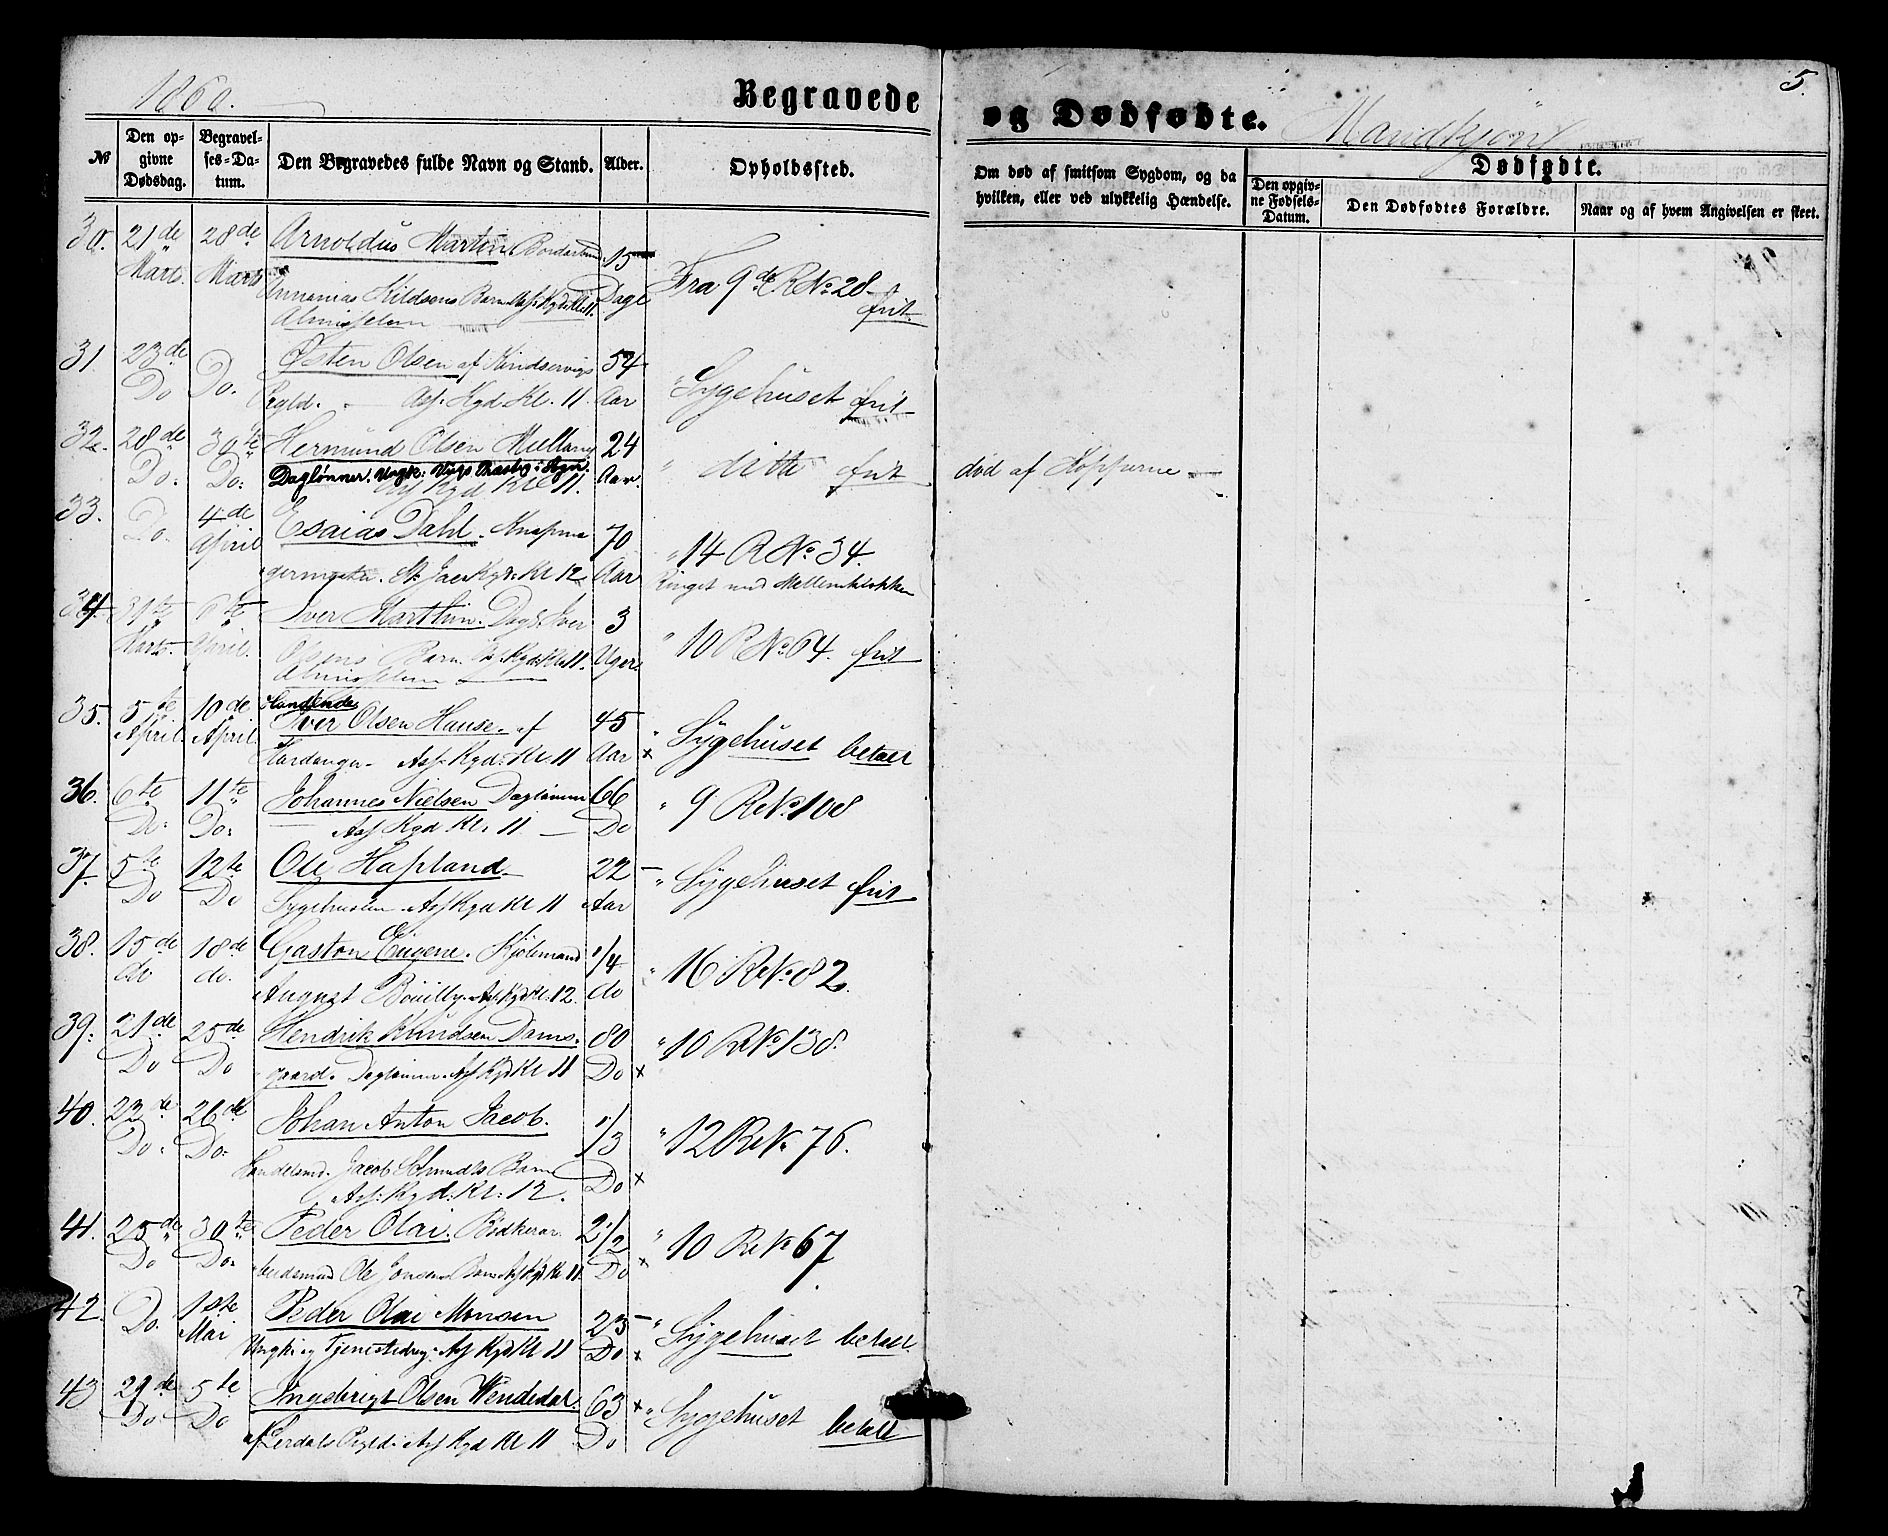 1860.
Begravede
og Dødfødte.
Mandkjøn
5.
No
Den opgivne Dødsdag.
Begravelses-Datum.
Den Begravedes fulde Navn og Stand.
Alder.
Opholdssted.
Om død af smitsom Sygdom, og da hvilken, eller ved ulykkelig Hændelse.
Dødfødte.
Den opgivne Fødsels-Datum.
Den Dødfødtes Forældre.
Naar og af hvem Angivelsen er skeet.
30. 21de Marts. 28de Marts Arnoldus Martin. 15 Dage Fra 9de R No 28 frit.
Barn Ass: Kygd: Kl 11.
Almisselem
31 23de Do Do. Østen Olsen af Kindservigs 54 Aar Sygehuset frit
Prgld. - Ass: Kygd. Kl. 11.
32. 28de Do. 30te Do: Hermund Olsen 24 Aar. ditto frit død af Kopperne
Daglønner. Ungk:
Ass Kygd Kl 11.
33. Do 4de April Esaias Dahl. Knapma 70 Aar " 14 R No 34.
germester. Kl 12 Ringet med Mellemklokken
34. 31te Marts. 6te April. Iver Marthin. Dagl: Iver 3 Uger " 10 R No 64. frit
Olsens Barn. Kygd: Kl 11.
Almisselem
35. 5te April 10de April Iver Olsen Hause. af 45 Aar x " Sygehuset betalt
Hardanger - Ass: Kygd: Kl. 11
36. 6te Do: 11te Do: Johannes Nielsen Daglønner 66 Do " 9 R No 108
Ass Kygd Kl. 11
37. 5te Do 12te Do Ole Hapland 22 Aar " Sygehuset frit
Sygehuslem. Ass Kygd Kl 11
38. 15de do 18de do. Gaston Eugene. 1/4 do " 16 R No 82.
August Bouilly. Ass Kygd Kl. 12.
39. 21de Do 25de Do Hendrik Knudsen Dams- 80 Do x " 10 R No 138.
gaard. Daglønner. Ass Kygd Kl 11
40. 22de Do. 26de Do. Johan Anton Jacob. 1/3 Do x " 12 R No 76.
Handelsmd. Jacob Schmidts Barn
Ass: Kygd: Kl: 12.
41. 25de Do 30te Do. Peder Olai. Bødkerar- 2 1/2 Do x " 10 R No 67
beidsmand Ole Barn Ass Kygd Kl 11.
42. Do. 1ste Mai Peder Olai Monsen 23 Do x " Sygehuset betalt.
Ungk: og Tjenestedrg. Ass Kygd Kl 11
43 29de Do 5te Do Ingebrigt Olsen Wendedal. 63 Do x " Sygehuset betalt
af Lerdals Prgld. Ass Kygd Kl 11